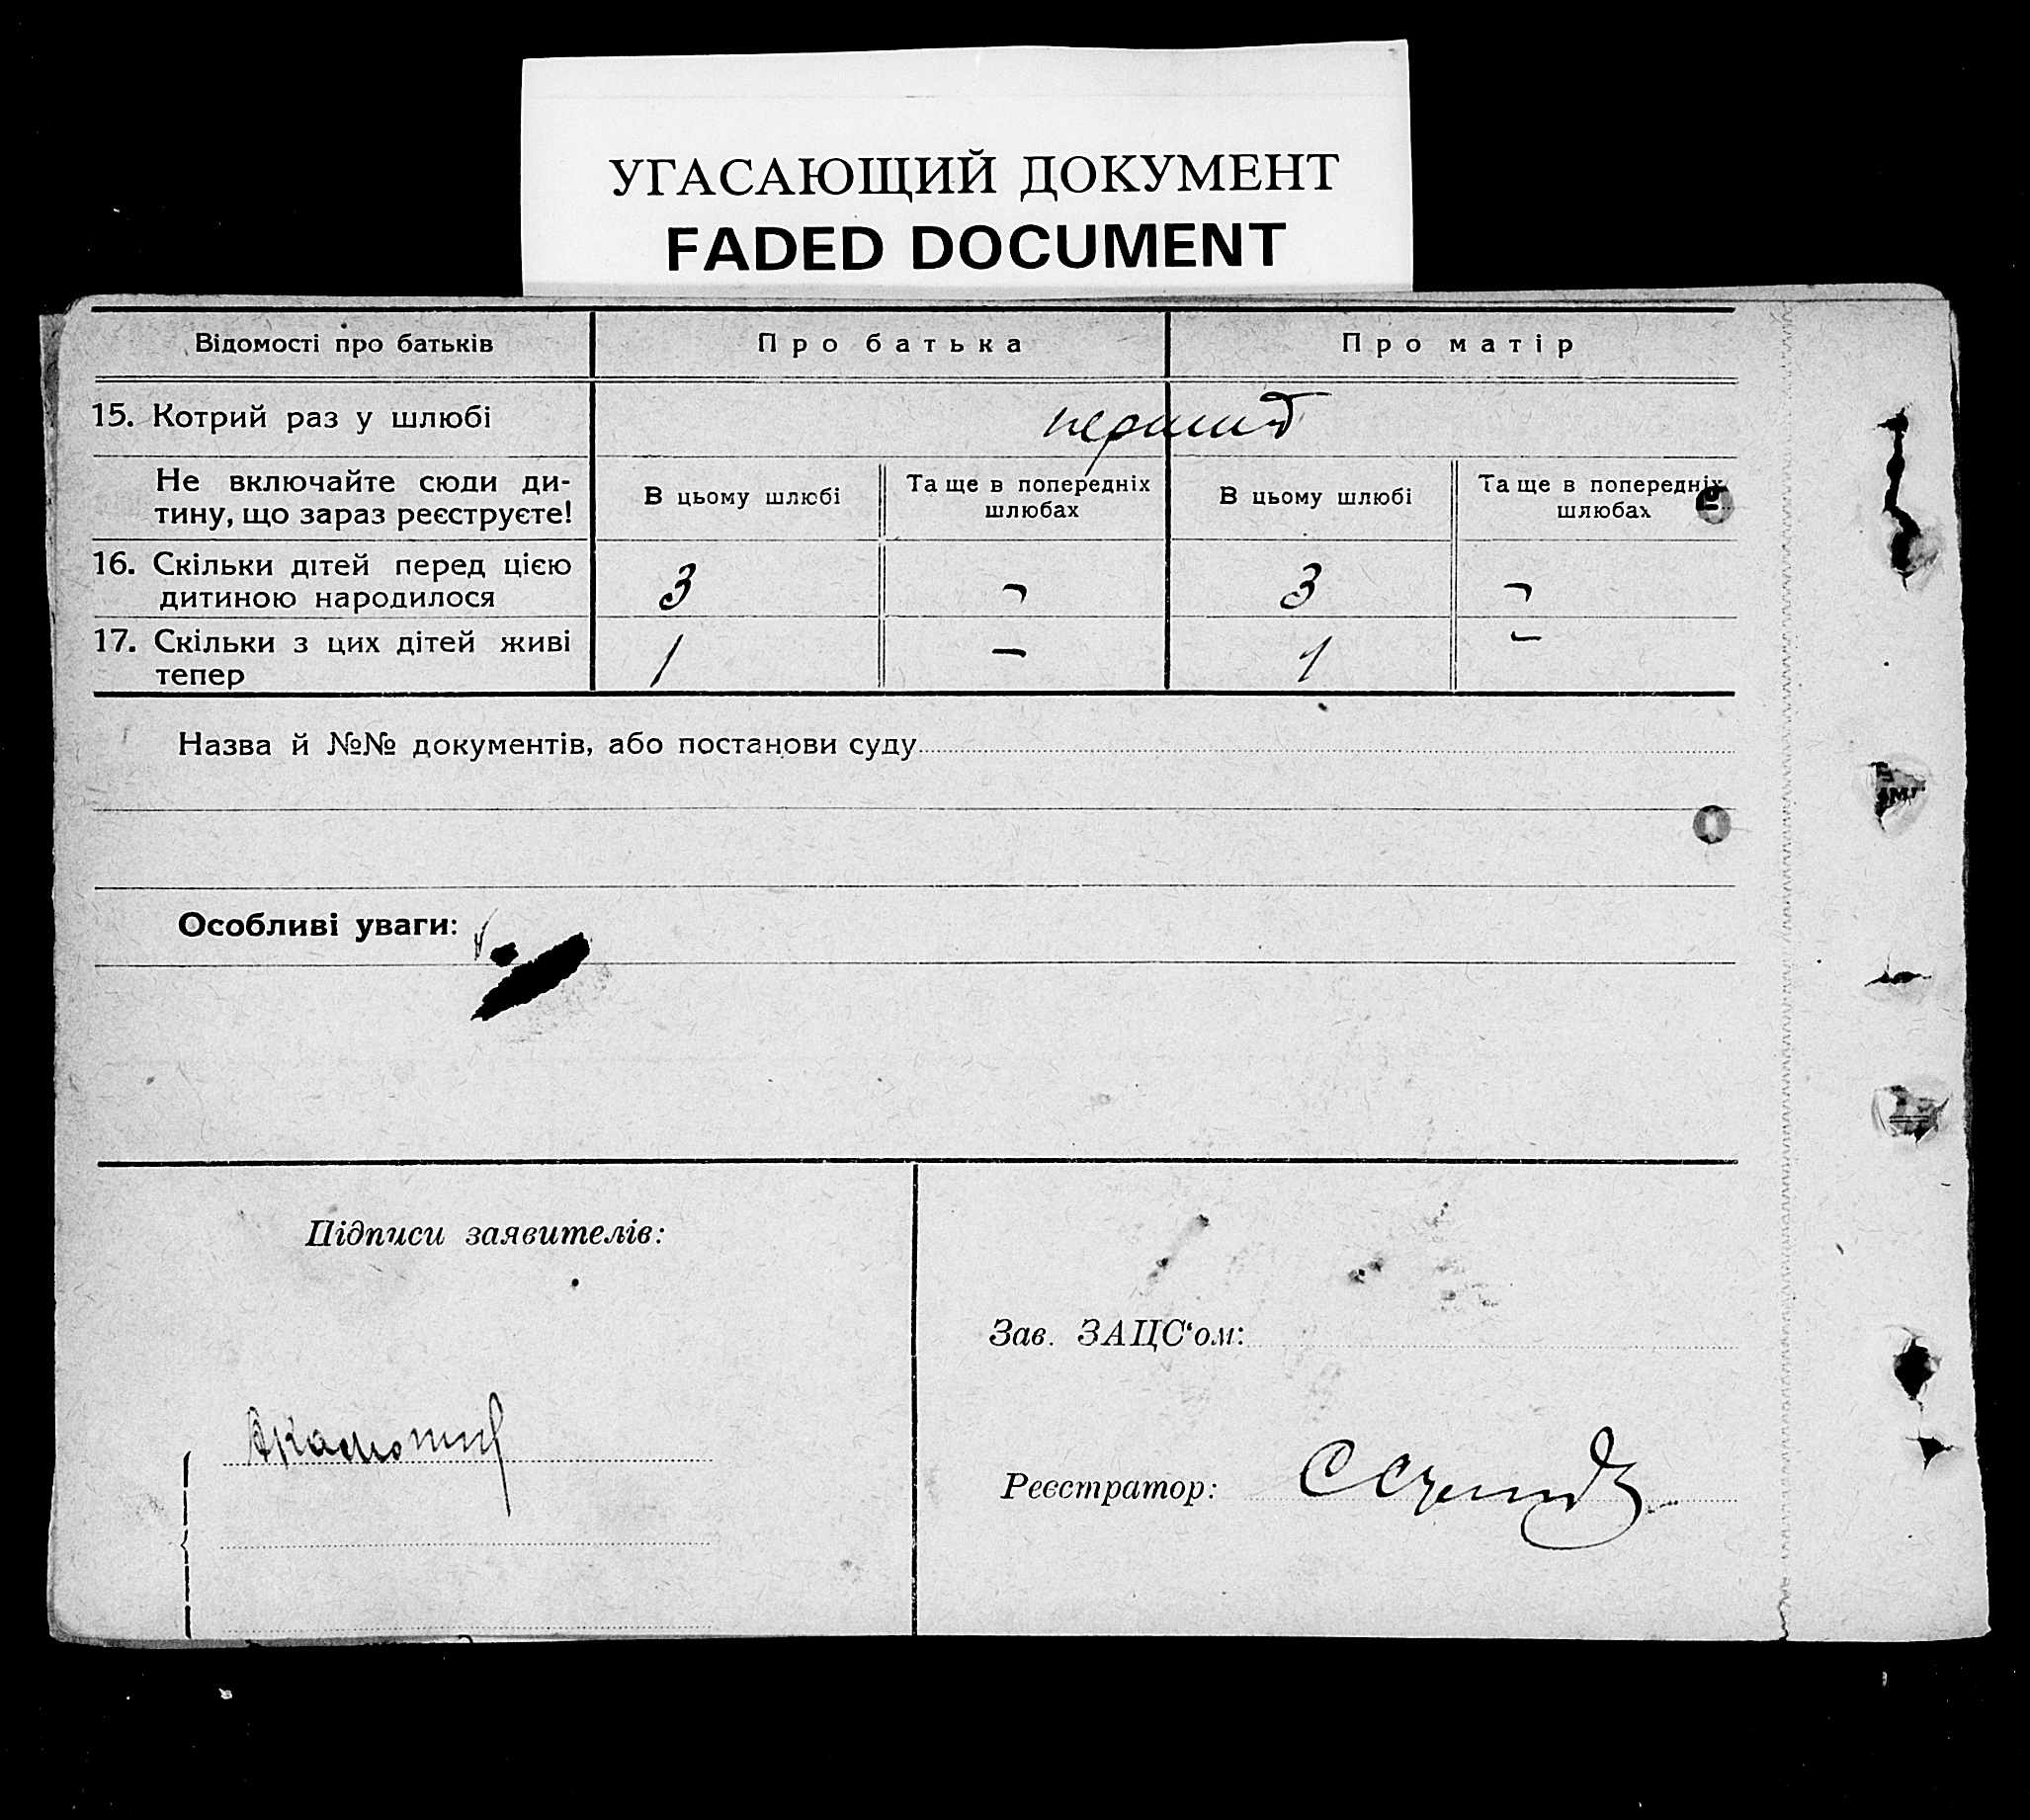 УГАСАЮЩИЙ ДОКУМЕНТ
FADED DOCUMENT
Відомості про батьків
Про батька
Про матір
15. Котрий раз у шлюбі
перший
Не включайте сюди ди-
тину, що зараз реєструєте!
В цьому шлюбі
Та ще в попередніх
шлюбах
В цьому шлюбі
Та ще в попередніх
шлюбах
16. Скільки дітей перед цією
дитиною народилося
3
-
3
-
17. Скільки з цих дітей живі
тепер
1
-
1
-
Назва й №№ документів, або постанови суду
Особливі уваги:
Підписи заявителів:
Зав. ЗАЦС‘ом:
Реєстратор: